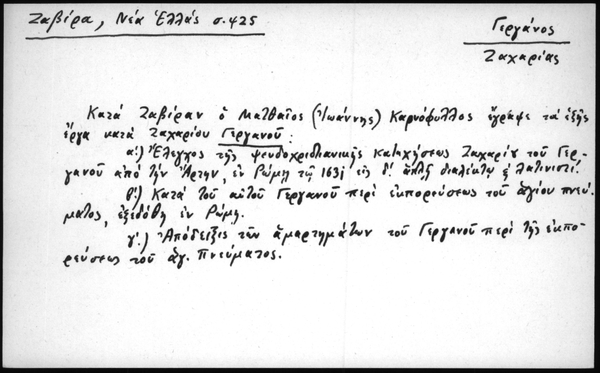 Ζαβίρα, Νέα Ἑλλάς σ. 425
Γεργάνος
Ζαχαρίας
Κατά Ζαβίραν ὁ Ματθαῖος (Ἰωάννης) Καρυόφυλλος ἔγραψε τά ἑξῆς
ἔργα κατά Ζαχαρίου Γεργανοῦ:
α΄.) Ἔλεγχος τῆς ψευδοχριστιανικῆς κατηχήσεως Ζαχαρίου τοῦ Γερ-
γανοῦ ἀπό τήν Ἄρτην, ἐν Ῥώμῃ τῷ 1631 εἰς δ΄. ἁπλῇ διαλέκτῳ ἑ λατινιστί.
β΄.) Κατά τοῦ αὐτοῦ Γεργανοῦ περί ἐκπορεύσεως τοῦ ἁγίου πνεύ-
ματος, ἐξεδόθη ἐν Ρώμῃ.
γ΄.) Ἀπόδειξις τῶν ἁμαρτημάτων τοῦ Γεργανοῦ περί τῆς ἐκπο-
ρεύσεως τοῦ ἁγ. Πνεύματος.